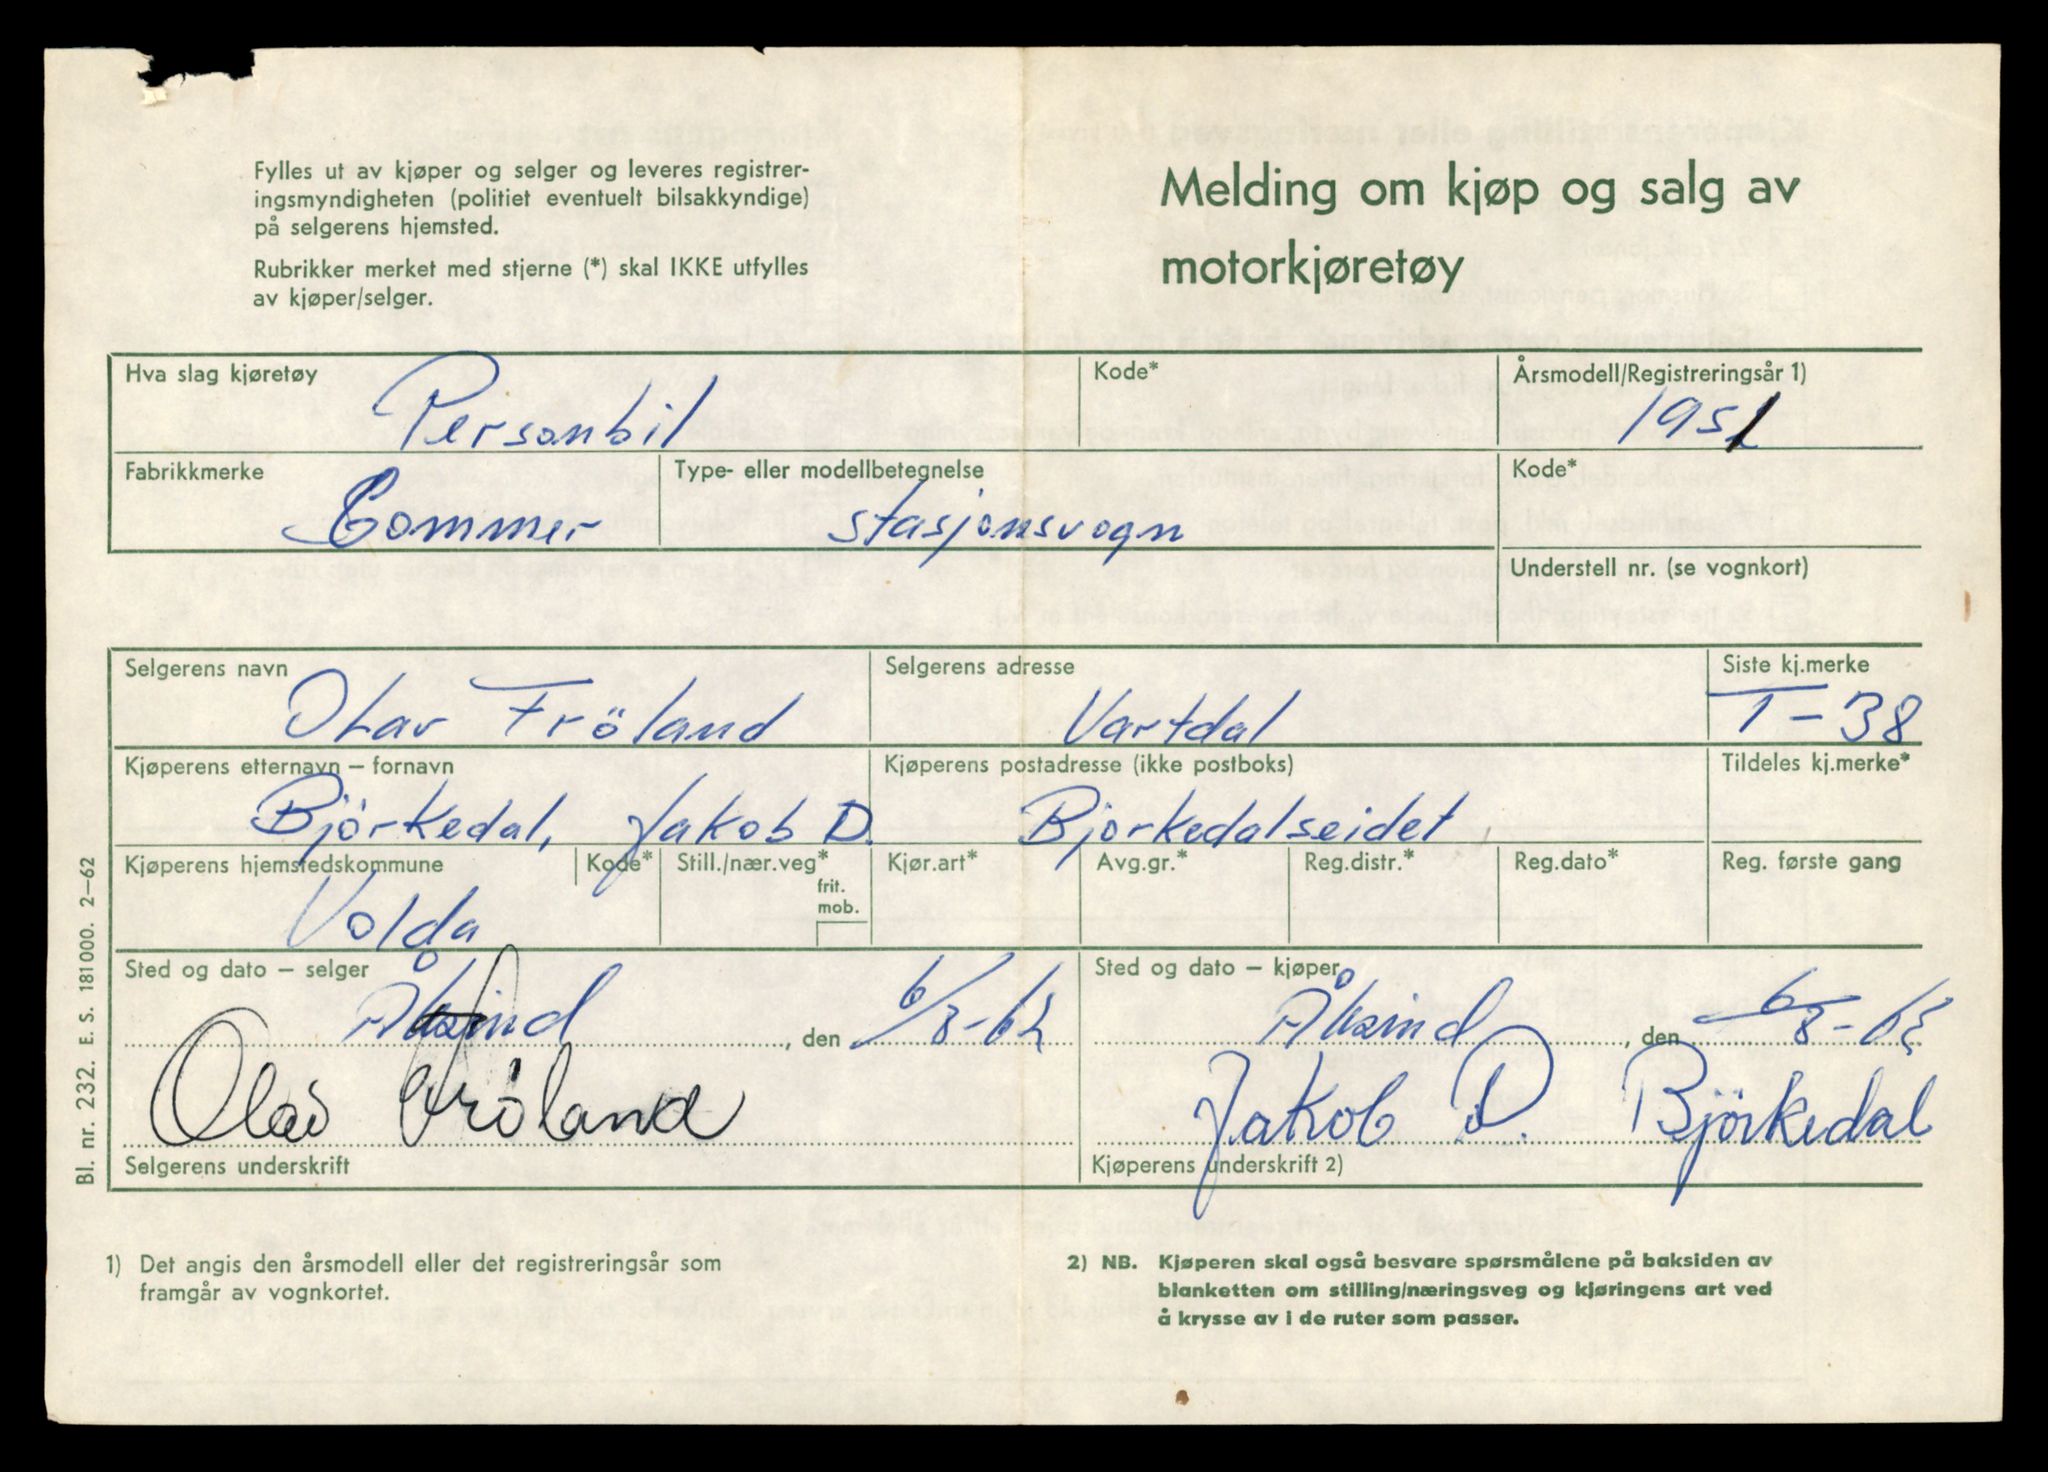 Fylles ut av kjøper og selger og leveres registrer-
ingsmyndigheten (politiet eventuelt bilsakkyndige)
på selgerens hjemsted.
Rubrikker merket med stjerne (*) skal IKKE utfylles
av kjøper/selger.
Melding om kjøp og salg av
motorkjøretøy
Hva slag kjøretøy
Personbil
Kode*
Årsmodell/Registreringsår 1)
1951
Fabrikkmerke
Commer
Type- eller modellbetegnelse
stasjonsvogn
Kode*
Understell nr. (se vognkort)
Selgerens navn
Olav Fröland
Selgerens adresse
Vartdal
Siste kj.merke
T-38
Kjøperens etternavn – fornavn
Björkedal, Jakob D.
Kjøperens postadresse (ikke postboks)
Bjorkedalseidet
Tildeles kj.merke*
Kjøperens hjemstedskommune
Volda
Kode*
Still./nær.veg*
frit.
mob.
Kjør.art*
Avg.gr.*
Reg.distr.*
Reg.dato*
Reg. første gang
Sted og dato – selger
Ålesund, den 6/8-62
Olav Fröland
Selgerens underskrift
Sted og dato – kjøper
Ålesund, den 6/8-62
Jakob D. Björkedal
Kjøperens underskrift 2)
Bl. nr. 232. E. S. 181000. 2–62
1) Det angis den årsmodell eller det registreringsår som
framgår av vognkortet.
2) NB. Kjøperen skal også besvare spørsmålene på baksiden av
blanketten om stilling/næringsveg og kjøringens art ved
å krysse av i de ruter som passer.